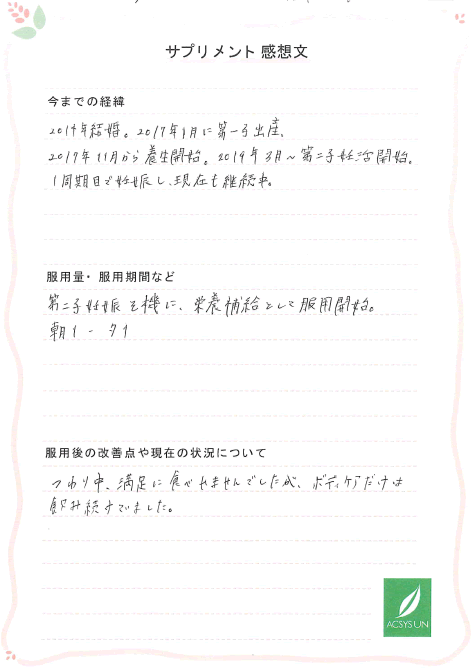 サプリメント 感想文
今までの経緯
2014年結婚。2017年1月に第一子出産、
2017年11月から養生開始。2019年3月～第二子妊活開始。
1周期目で妊娠し、現在も継続中。
服用量・服用期間など
第二子妊娠を機に、栄養補給として服用開始。
朝1 - 夕1
服用後の改善点や現在の状況について
つわり中、満足に食べれませんでしたが、ボディケアだけは
飲み続けていました。
ACSYSUN